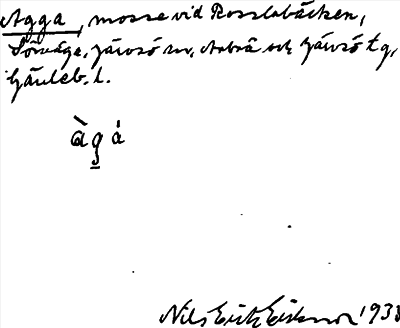 Agga, mosse vid Rosslabäcken,
Sörvåge, Järvsö sn, Arbrå och Järvsö tg,
Gävleb. l.
àgá
Nils Erik Eriksson 1938